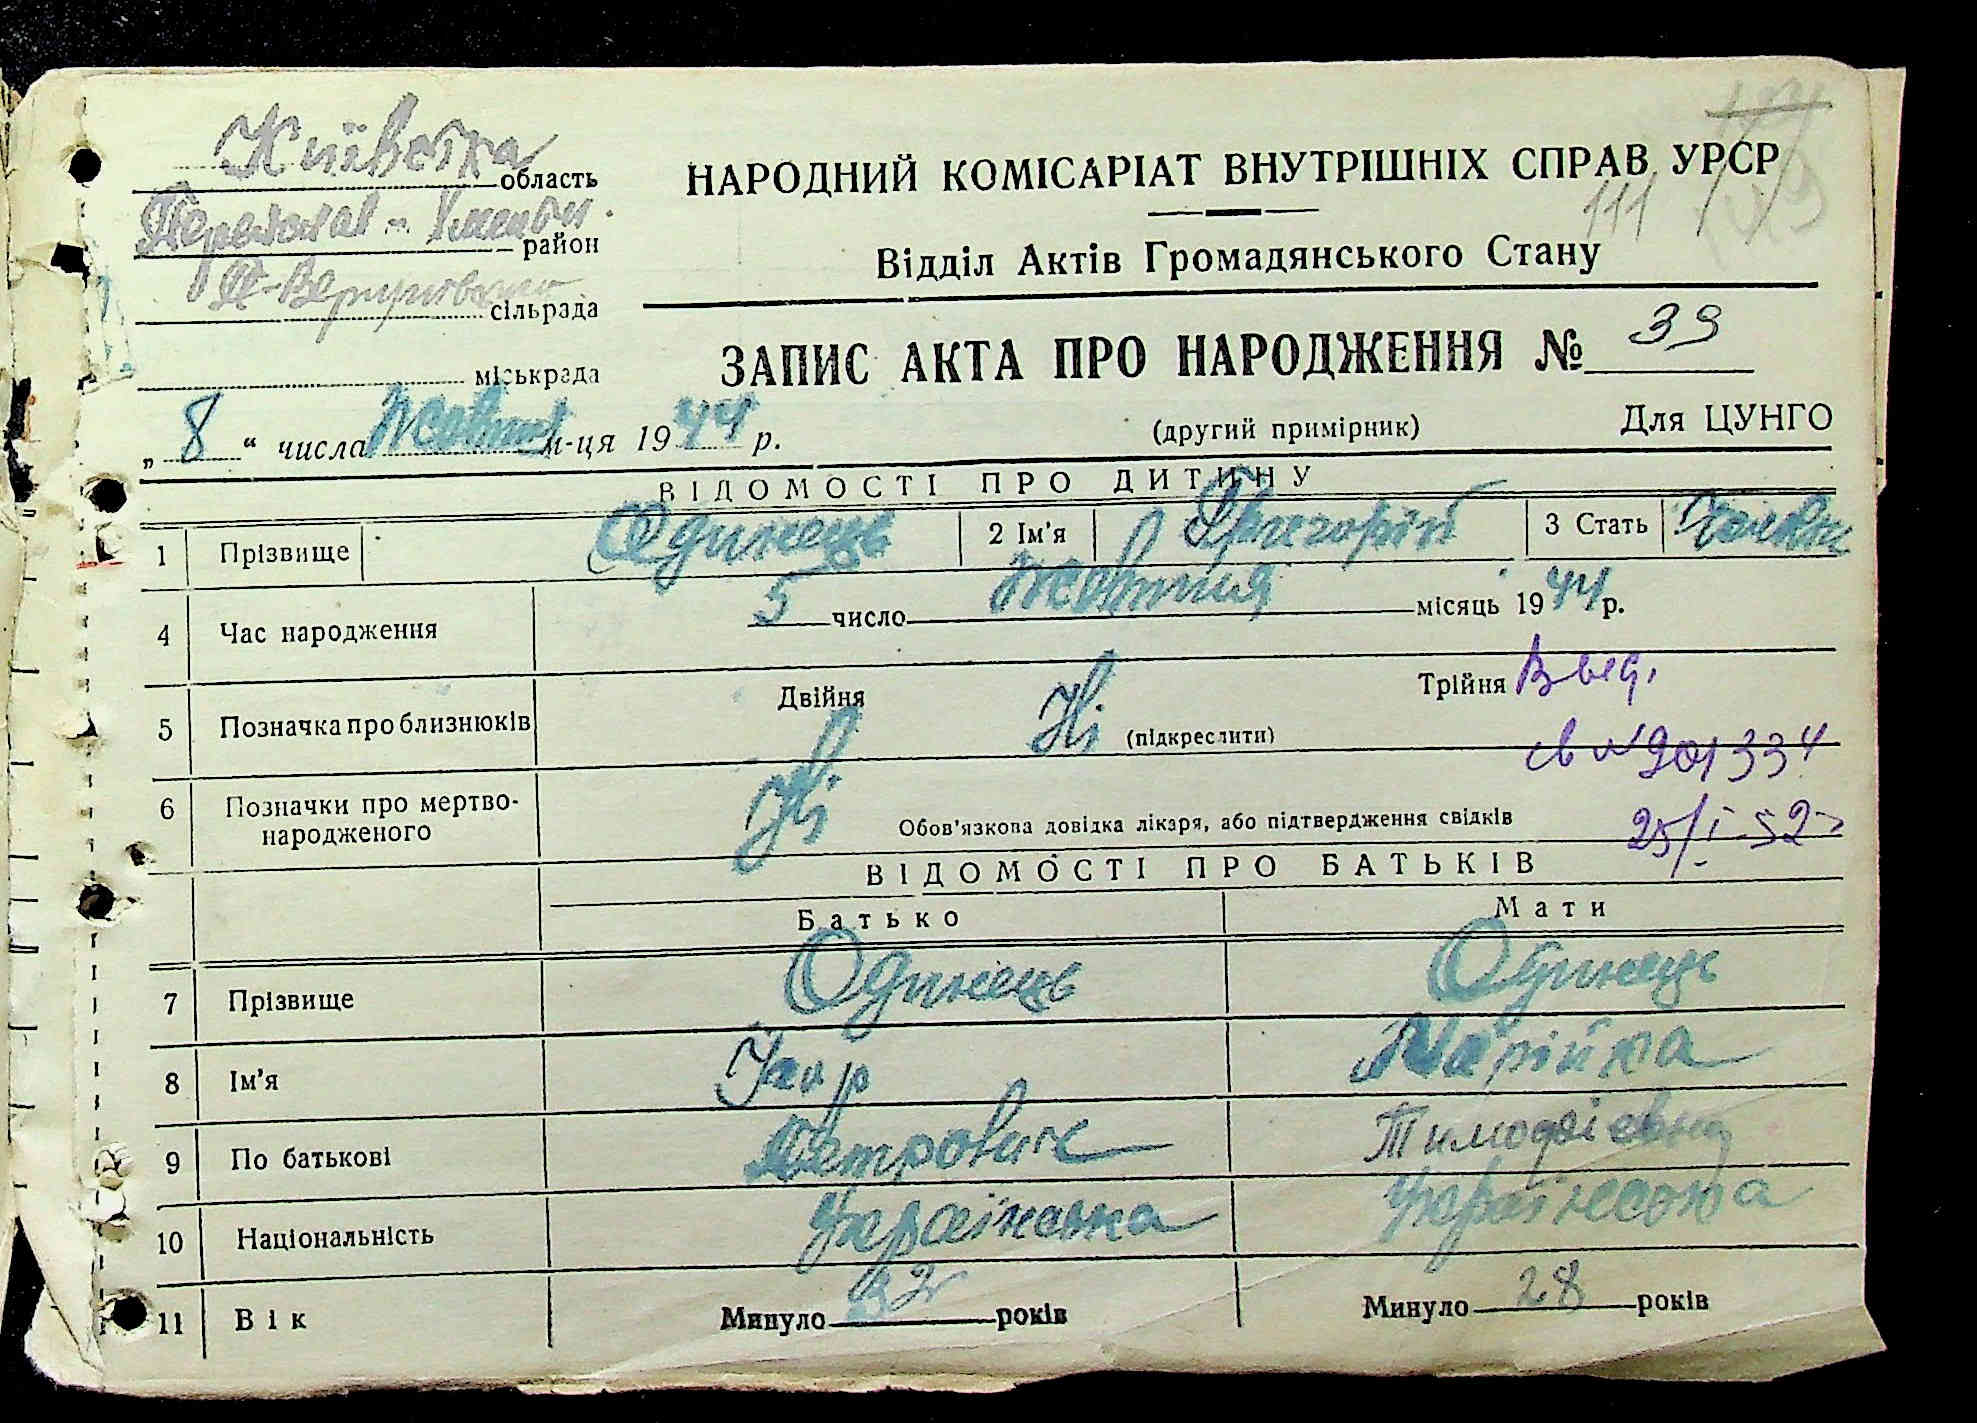 Київська область
Переяслав-Хмельн. район
сільрада
міськрада
НАРОДНИЙ КОМІСАРІАТ ВНУТРІШНІХ СПРАВ УРСР
111
Відділ Актів Громадянського Стану
ЗАПИС АКТА ПРО НАРОДЖЕННЯ № 39
„ 8 “ числа Жовтня м-ця 1944 р.
(другий примірник)
Для ЦУНГО
ВІДОМОСТІ ПРО ДИТИНУ
1 Прізвище Одинець 2 Ім'я Григорій 3 Стать
4 Час народження 5 число Жовтня місяць 1944 р.
5 Позначка про близнюків Двійня Ні (підкреслити) Трійня
св №901334
25/I-52
6 Позначки про мертво-
народженого Ні Обов'язкова довідка лікаря, або підтвердження свідків
ВІДОМОСТІ ПРО БАТЬКІВ
Батько Мати
7 Прізвище Одинець Одинець
8 Ім'я Марійка
9 По батькові Петрович Тимофієвна
10 Національність Українська Українська
11 Вік Минуло 32 років Минуло 28 років